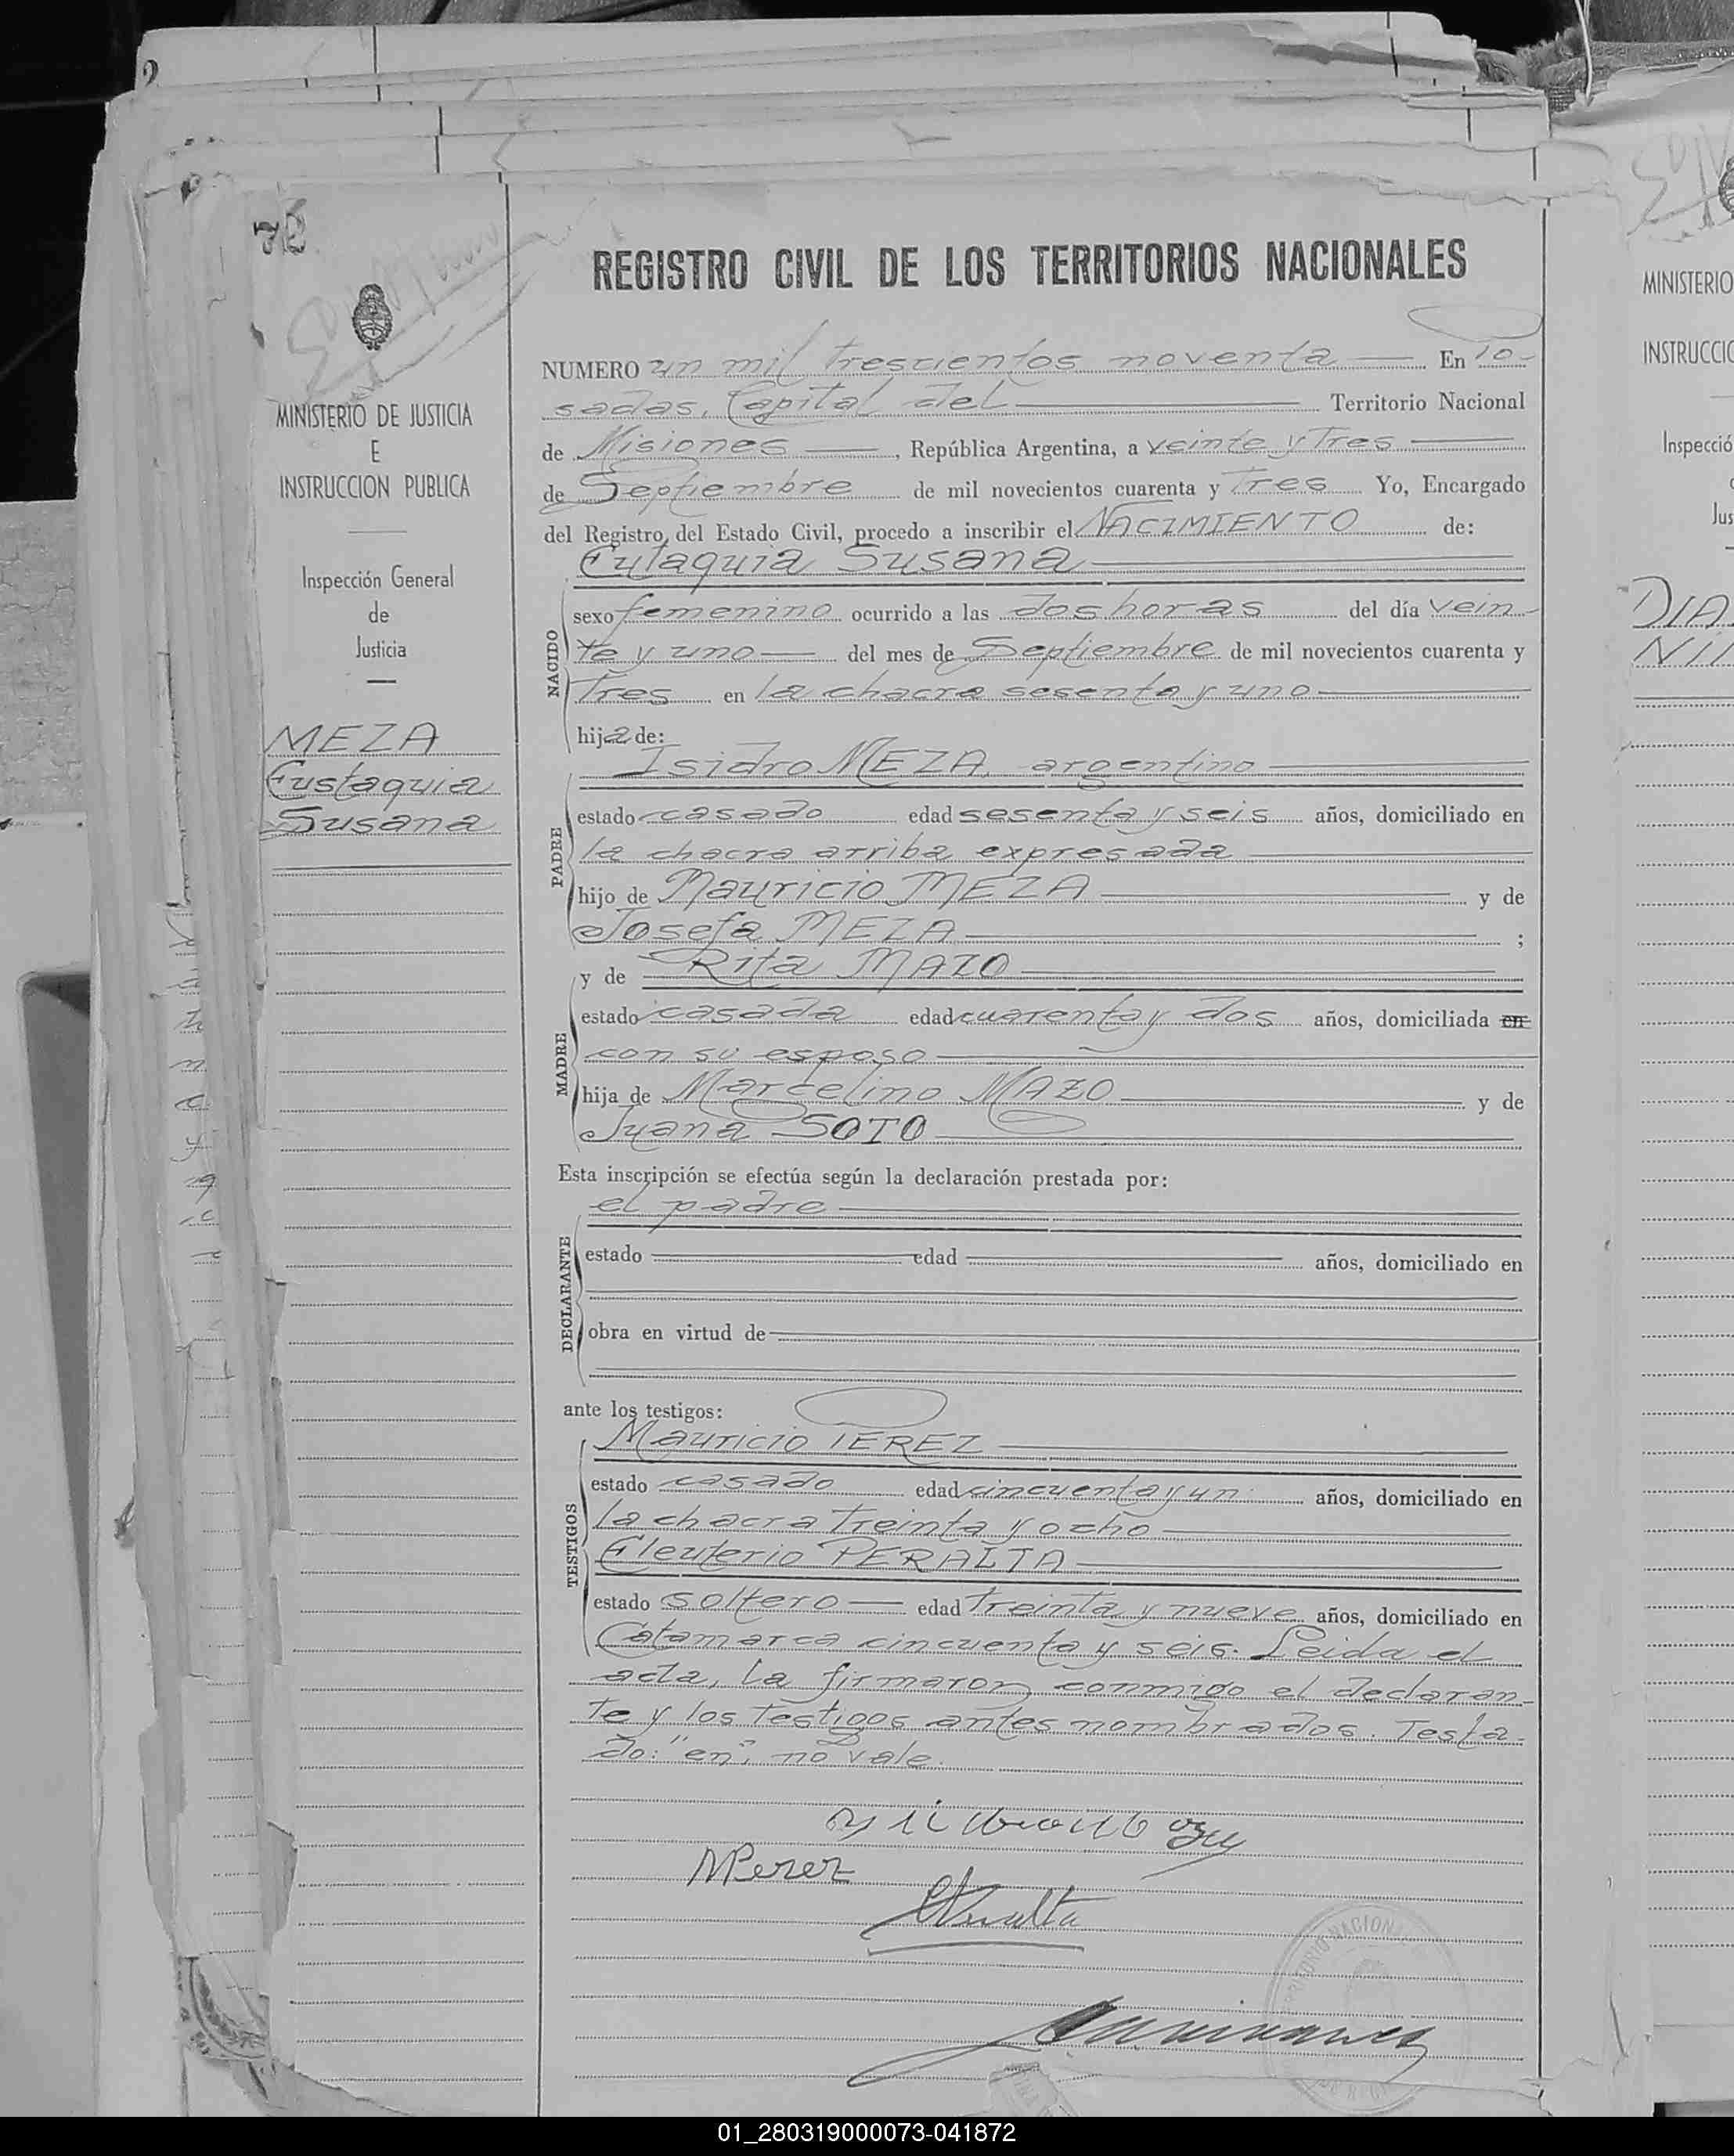 REGISTRO CIVIL DE LOS TERRITORIOS NACIONALES
MINISTERIO DE JUSTICIA
E
INSTRUCCION PUBLICA
Inspección General
de
Justicia
MEZA
Eustaquia
Susana
NUMERO un mil trescientos noventa En Po-
sadas, Capital del Territorio Nacional
de Misiones, República Argentina, a veinte y tres
de Septiembre de mil novecientos cuarenta y tres Yo, Encargado
del Registro del Estado Civil, procedo a inscribir el NACIMIENTO de:
Eutaquia Susana
NACIDO
sexo femenino ocurrido a las dos horas del día vein-
te y uno del mes de Septiembre de mil novecientos cuarenta y
tres en la chacra sesenta y uno
hija de:
Isidro MEZA, argentino
PADRE
estado casado edad sesenta y seis años, domiciliado en
la chacra arriba expresada
hijo de Mauricio MEZA y de
Josefa MEZA ;
y de Rita MAZO
MADRE
estado casada edad cuarenta y dos años, domiciliada en
con su esposo
hija de Marcelino MAZO y de
Juana SOTO
Esta inscripción se efectúa según la declaración prestada por:
el padre
DECLARANTE
estado edad años, domiciliado en
obra en virtud de
ante los testigos:
Mauricio PEREZ
TESTIGOS
estado casado edad cincuenta y un años, domiciliado en
la chacra treinta y ocho
Eleuterio PERALTA
estado soltero edad treinta y nueve años, domiciliado en
Catamarca cincuenta y seis. Leida el
acta, la firmaron conmigo el declaran-
te y los testigos antes nombrados. Testa-
do: "en", no vale.
MPerez
EPeralta
MINISTERIO
INSTRUCCIO
Inspecció
Jus
DIA
01_280319000073-041872